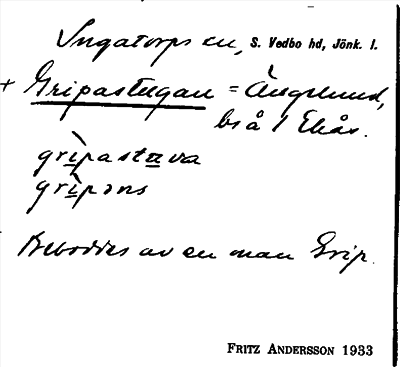 Ingatorps sn, S. Vedbo hd, Jönk. l.
+ Gripastugan = Änglund,
bs å 1 Ekås.
grìpastu̲va
grìpəns
Beboddes av en man Grip.
FRITZ ANDERSSON 1933